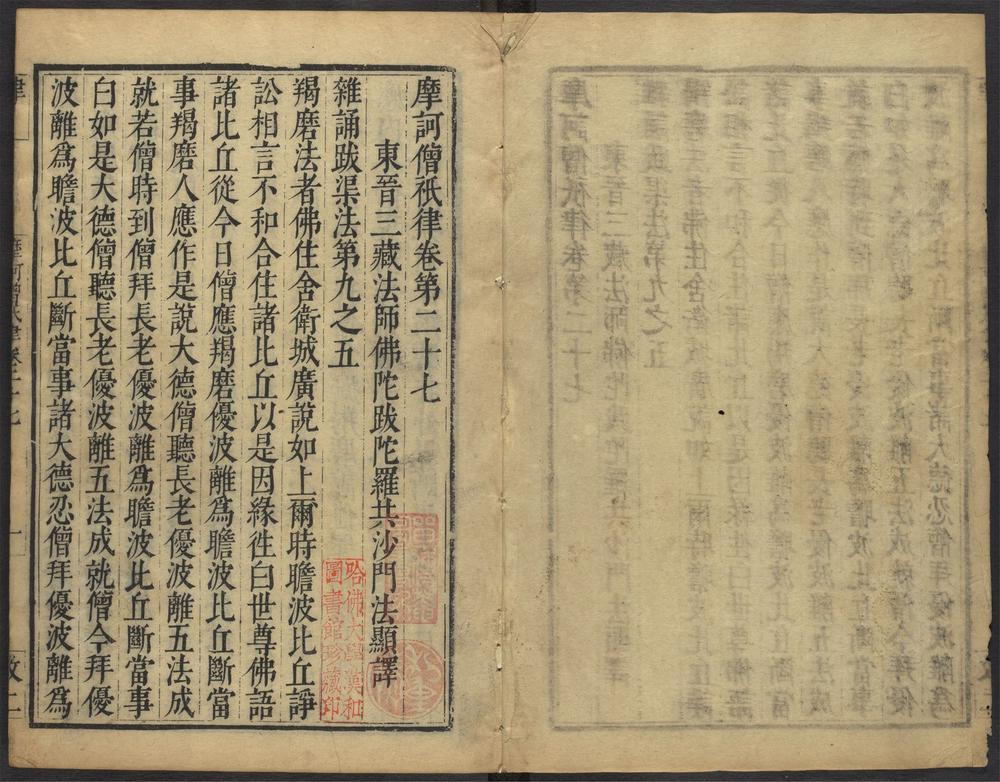 摩訶僧祇律卷第二十七
東晉三藏法師佛陀跋陀羅共沙門法顯譯
雜誦跋渠法第九之五
羯磨法者佛住舍衛城廣說如上爾時瞻波比丘諍
訟相言不和合住諸比丘以是因緣徃白世尊佛語
諸比丘從今日僧應羯磨優波離爲瞻波比丘斷當
事羯磨人應作是說大德僧聽長老優波離五法成
就若僧時到僧拜長老優波離爲瞻波比丘斷當事
白如是大德僧聽長老優波離五法成就僧今拜優
波離爲瞻波比丘斷當事諸大德忍僧拜優波離爲
律
摩訶僧祇律卷二十七
一
哈佛大學漢和
圖書館珍藏印